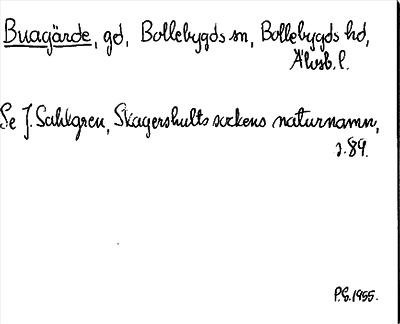 Buagärde, gd, Bollebygds sn, Bollebygds hd,
Älvsb. l.
Se J. Sahlgren, Skagershults sockens naturnamn,
s. 89.
P.G. 1955.